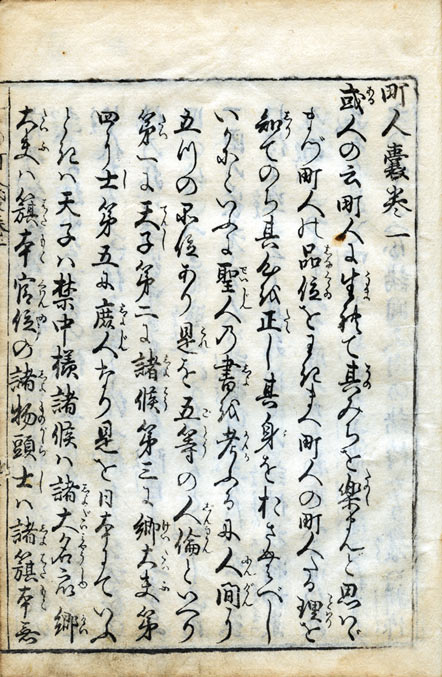 町人嚢巻一
或人の云町人に生れて其みちを楽まんと思はゞ
まづ町人の品位をわきまへ町人の町人たる理を
知てのち其心を正し其身をおさむべし
いかにといふに聖人の書を考ふるに人間に
五つの品位あり是を五等の人倫といへり
第一に天子第二に諸侯第三に卿大夫第
四に士第五に庶人なり是を日本にていふ
ときハ天子ハ禁中様諸侯ハ諸大名衆卿
大夫ハ籏本官位の諸物頭士ハ諸籏本無